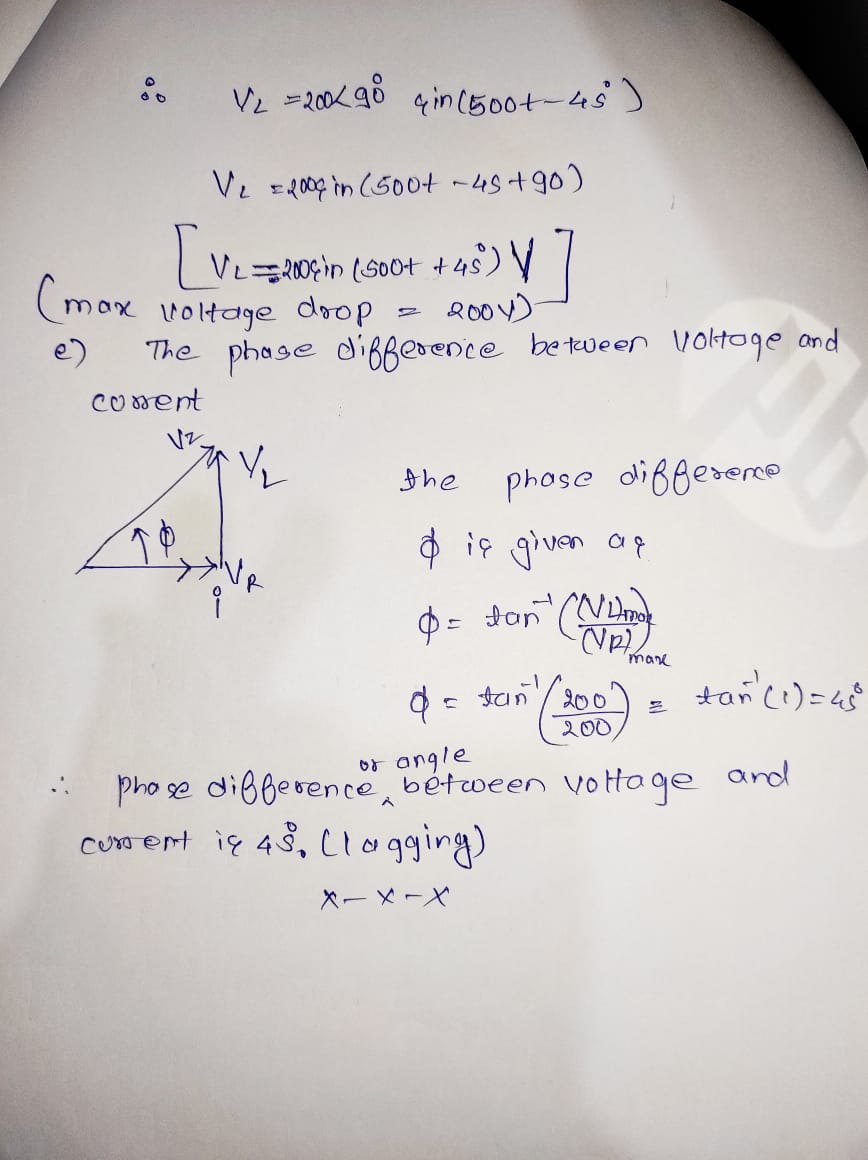 ∴ VL = 200∠90° sin(500t - 45°)
VL = 200sin(500t - 45 + 90)
[VL = 200sin(500t + 45°) V]
(max voltage drop = 200V)
e) The phase difference between voltage and
current
VZ
VL
ϕ
VR
i
the phase difference
ϕ is given as
ϕ = tan⁻¹((VL)max/(VR)max)
ϕ = tan⁻¹(200/200) = tan⁻¹(1) = 45°
∴ phase difference or angle between voltage and
current is 45°. (lagging)
x-x-x